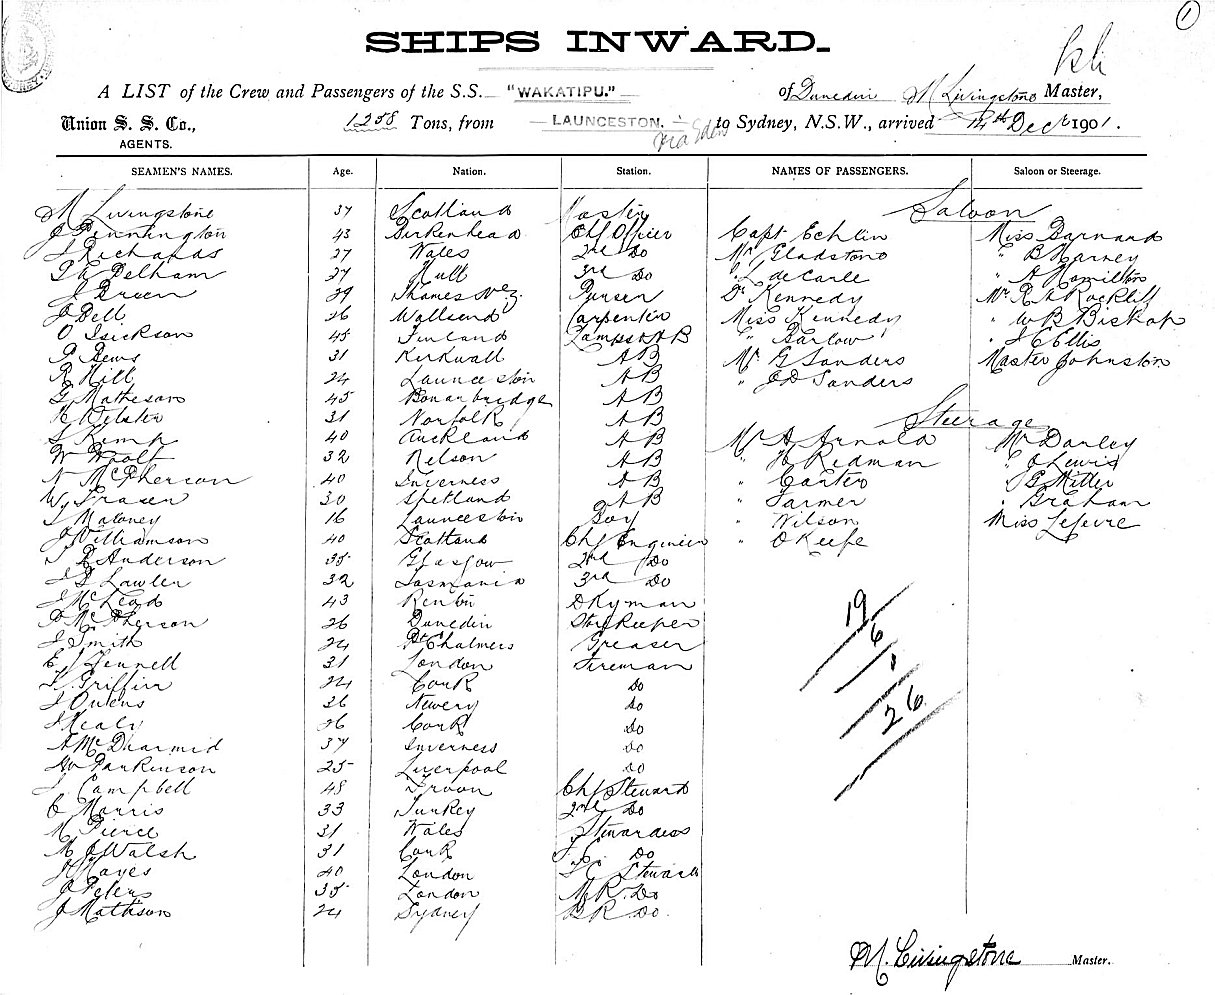 1
SHIPS INWARD.
A LIST of the Crew and Passengers of the S.S. "WAKATIPU." of Dunedin M Livingstone Master,
Union S. S. Co., 1258 Tons, from LAUNCESTON. via Eden to Sydney, N.S.W., arrived 14th Dec 1901.
AGENTS.
SEAMEN'S NAMES. Age. Nation. Station. NAMES OF PASSENGERS. Saloon or Steerage.
M Livingstone 37 Scotland Master Saloon
J Pennington 43 Birkenhead Chf Officer Capt Echlin Miss Barnard
Richards 27 Wales 2nd Do Mr Gladstone " B Harney
Pelham 27 Hull 3rd Do " L de Carle " A Hamilton
J Green 29 Thames N.Z. Purser Dr Kennedy Mr R A Rockliff
J Bell 26 Wallsend Carpenter Miss Kennedy " W B Bishop
O Isickson 45 Finland Lamps & AB " Barlow " J C Ellis
P Bews 31 Kirkwall AB Mr G Sanders Master Johnston
R Hill 24 Launceston AB " J D Sanders
G Matheson 45 Bonarbridge AB
31 Norfolk AB Steerage
S Kemp 40 Auckland AB Mr A Arnold Mr Darley
W Woolf 32 Nelson AB " H Redman " C Lewis
N McPherson 40 Inverness AB " Carter " G Miller
Wm Fraser 30 Shetland AB " Farmer " Graham
J Maloney 16 Launceston Boy " Wilson Miss Lefevre
J Williamson 40 Scotland Chf Engineer " O Keefe
Anderson 35 Glasgow 2nd Do
Lawler 32 Tasmania 3rd Do
J McLeod 43 Renton D Kyman 19
D McPherson 26 Dunedin Storekeeper 6
J Smith 24 Pt Chalmers Greaser 1
E J Fennell 31 London Fireman
T Griffin 24 Cork Do
J Owens 26 Newery Do 26
J Healy 26 Cork Do
A McDiarmid 37 Inverness Do
Parkinson 25 Liverpool Do
J Campbell 48 Troon Chf Steward
C Morris 33 Turkey 2nd Do
M Pierce 31 Wales Stewardess
M J Walsh 31 Cork F.C. Do
J Hayes 40 London S C Steward
J Peters 35 London M R Do
J Mathison 24 Sydney B R Do
M. Livingstone Master.